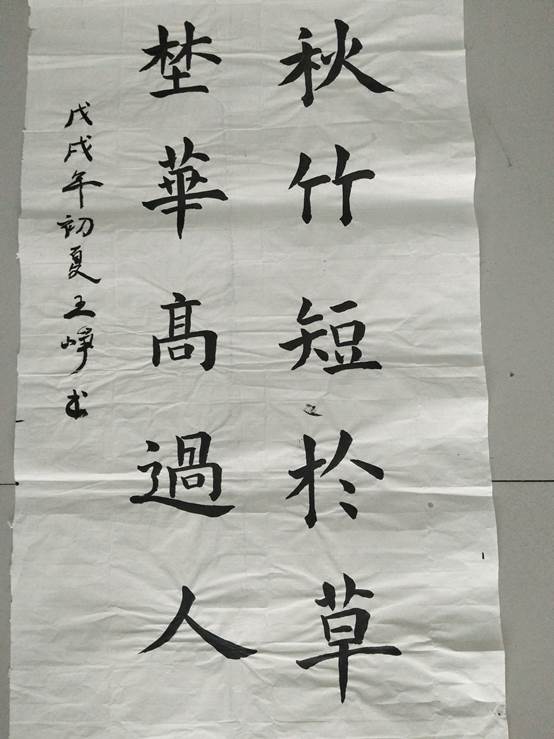 秋竹短於草
埜華髙過人
戊戌年初夏王峥书